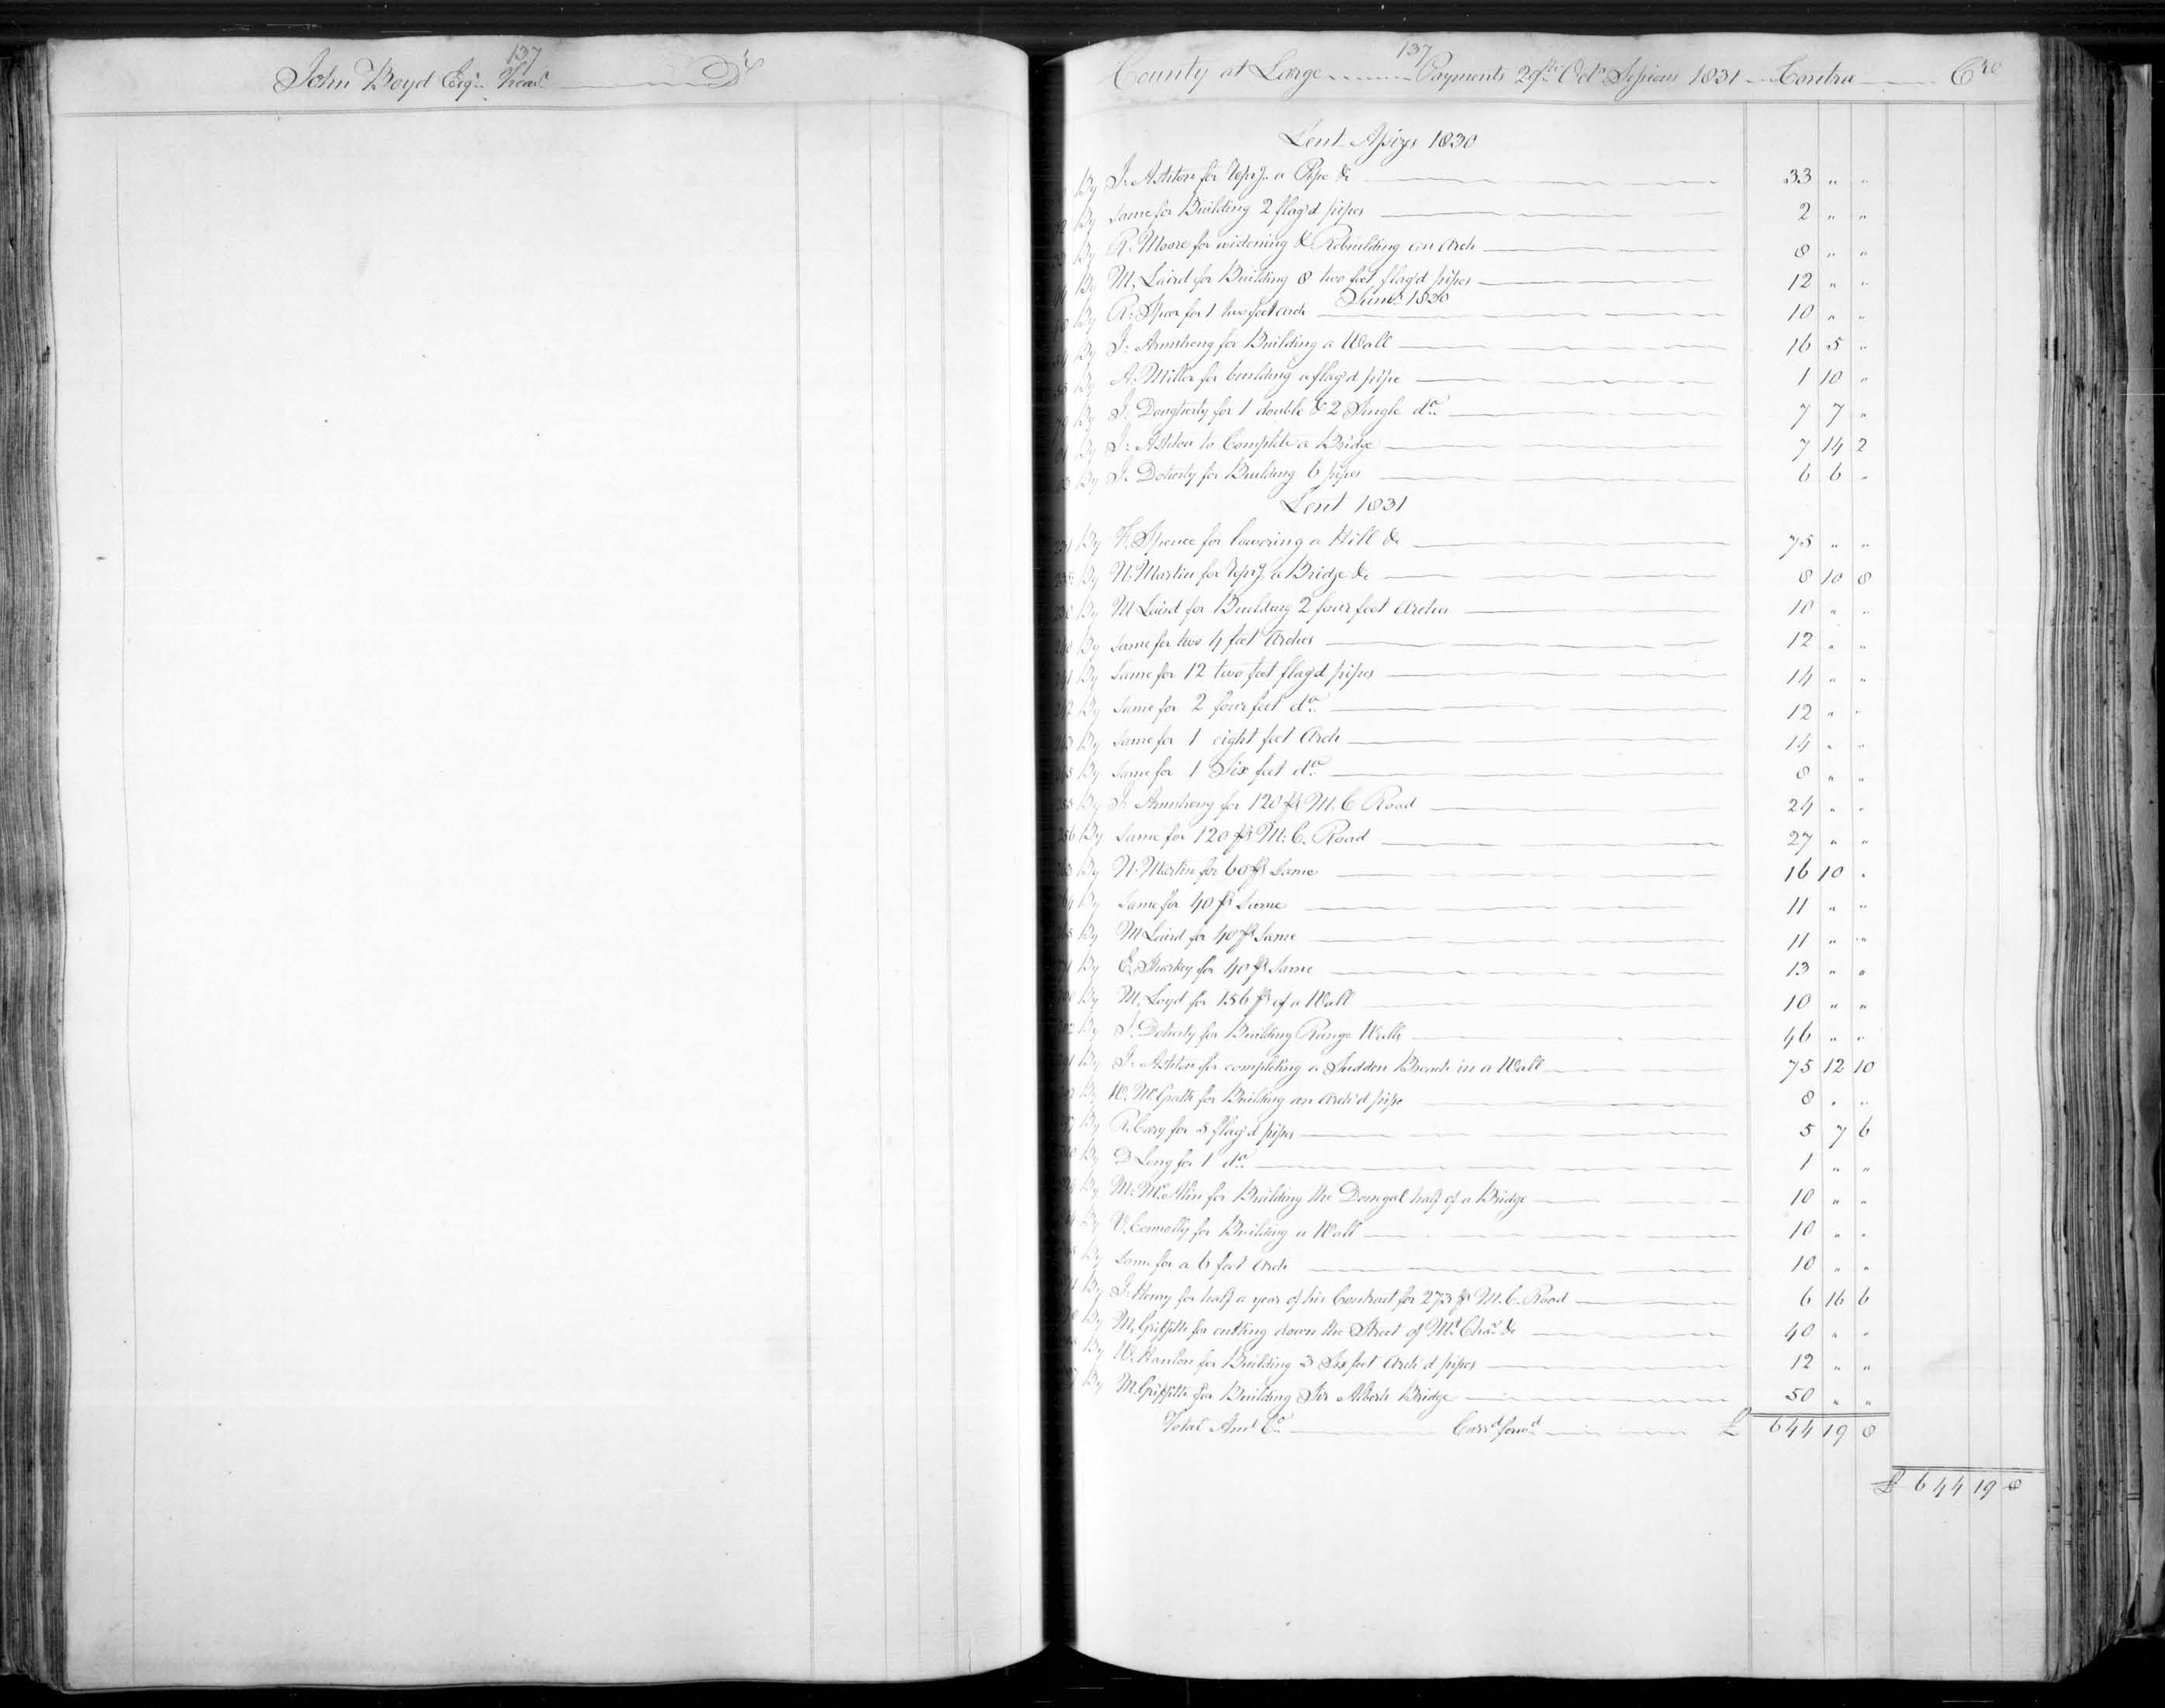 137
John Boyd Esqr. Trear. Dr
137
County at Large Payments 29th Octr Sessions 1831 Contra Cre
Lent Assizes 1830
By J. Ashton for repg. a Pipe &c 33 " "
By Same for Building 2 flag'd pipes 2 " "
By R. Moore for widening & Rebuilding an Arch 8 " "
By M. Laird for Building 8 two feet flag'd pipes 12 " "
Sumr. 1830
By R. Speer for 1 two feet Arch 10 " "
By J. Armstrong for Building a Wall 16 5 "
By A. Miller for building a flag'd pipe 1 10 "
By J. Dougherty for 1 double & 2 Single do. 7 7 "
By J. Ashton to Complete a Bridge 7 14 2
By J. Doherty for Building 6 pipes 6 6 "
Lent 1831
By Spence for lowering a Hill &c 75 " "
By N. Martin for repg. a Bridge &c 8 10 8
By M Laird for Building 2 four feet Arches 10 " "
By Same for two 4 feet Arches 12 " "
241 By Same for 12 two feet flag'd pipes 14 " "
242 By Same for 2 four feet do. 12 " "
By Same for 1 eight feet Arch 14 " "
By Same for 1 Six feet do. 8 " "
By J. Armstrong for 120 ps M. C Road 24 " "
256 By Same for 120 ps M. C. Road 27 " "
By N. Martin for 60 ps Same 16 10 "
By Same for 40 ps Same 11 " "
By M Laird for 40 ps Same 11 " "
By E. Sharkey for 40 ps Same 13 " "
By M. Loyd for 156 ps of a Wall 10 " "
By J. Doherty for Building Range Walls 46 " "
By J. Ashton for completing a Sudden Breach in a Wall 75 12 10
By W. McGrath for Building an Arch'd pipe 8 " "
By R. Cary for 5 flag'd pipes 5 7 6
By D Long for 1 do. 1 " "
By M. for Building the Donegal half of a Bridge 10 " "
By Connolly for Building a Wall 10 " "
By Same for a 6 feet Arch 10 " "
By J. Henry for half a year of his Contract for 273 ps M. C. Road 6 16 6
By M. Griffith for cutting down the Street of Mt. Chas. &c 40 " "
By W. Hanlon for Building 3 Six feet Arch'd pipes 12 " "
By M. Griffith for Building Sir Alberts Bridge 50 " "
Total Amt. Co. Carrd. forwd. £ 644 19 8
£ 644 19 8